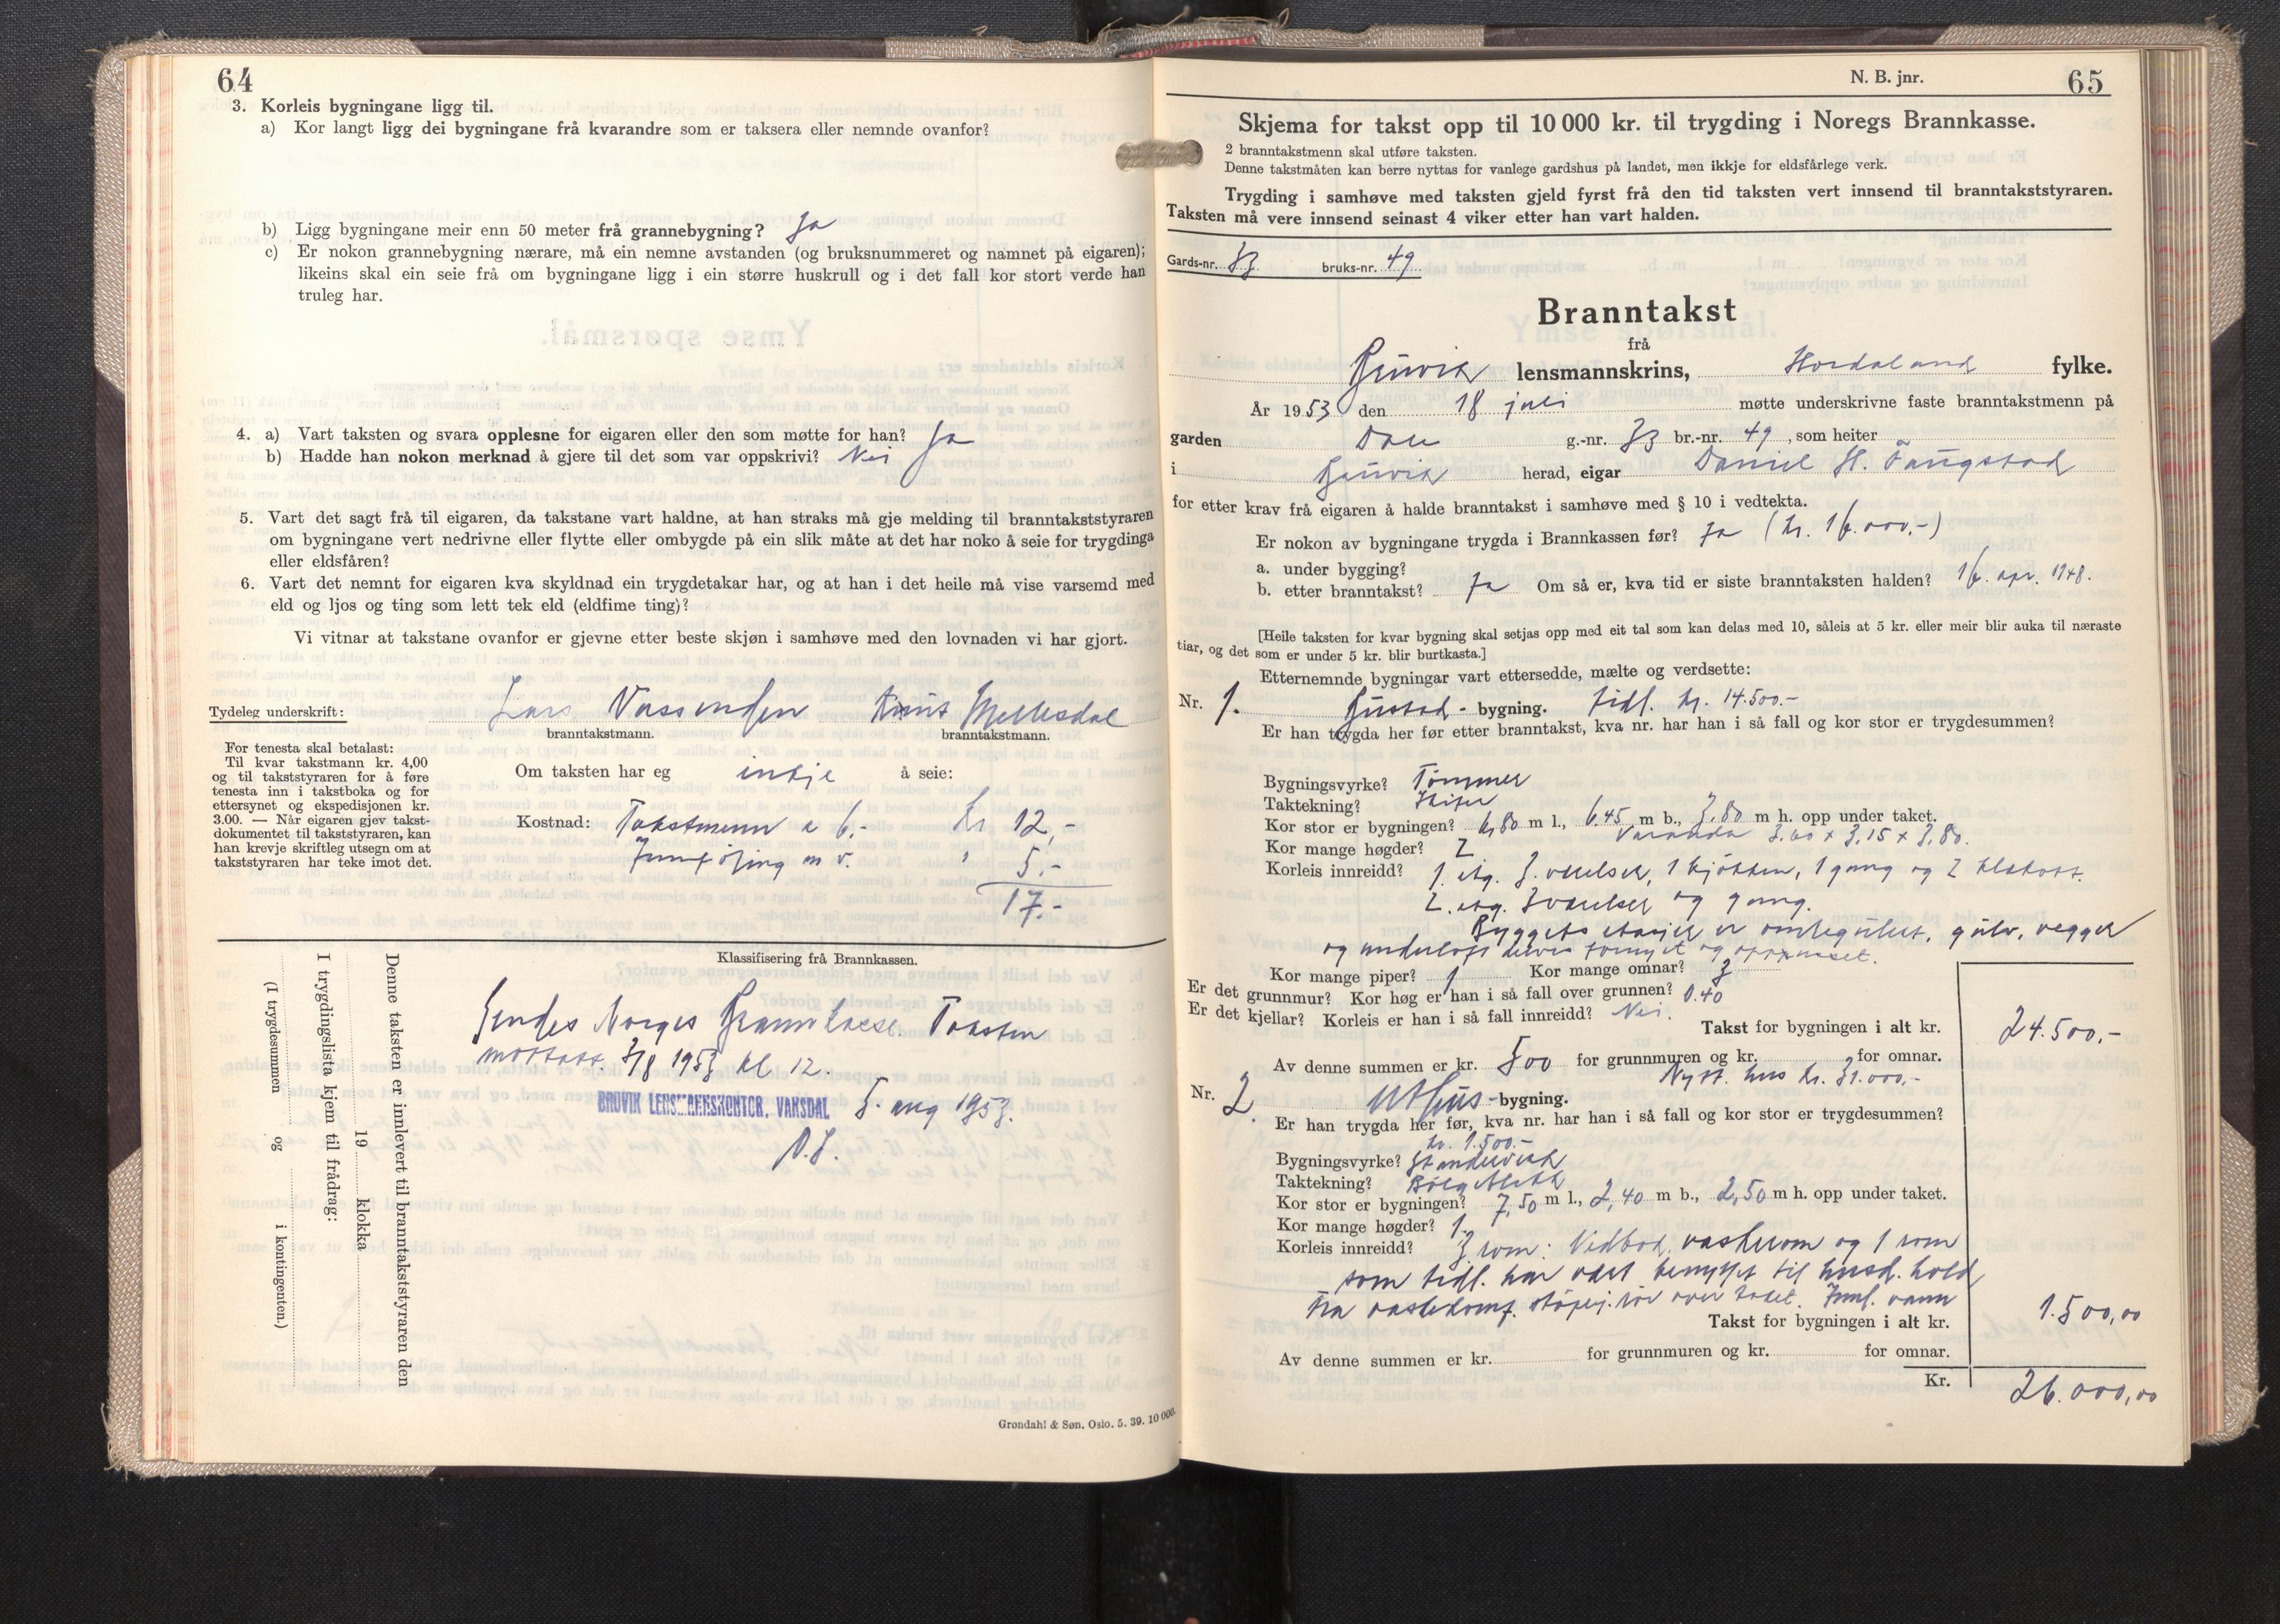 64
3. Korleis bygningane ligg til.
a) Kor langt ligg dei bygningane frå kvarandre som er taksera eller nemnde ovanfor?
b) Ligg bygningane meir enn 50 meter frå grannebygning? Ja
c) Er nokon grannebygning nærare, må ein nemne avstanden (og bruksnummeret og namnet på eigaren);
likeins skal ein seie frå om bygningane ligg i ein større huskrull og i det fall kor stort verde han
truleg har.
4. a) Vart taksten og svara opplesne for eigaren eller den som møtte for han? Ja
b) Hadde han nokon merknad å gjere til det som var oppskrivi? Nei
5. Vart det sagt frå til eigaren, da takstane vart haldne, at han straks må gje melding til branntakststyraren
om bygningane vert nedrivne eller flytte eller ombygde på ein slik måte at det har noko å seie for trygdinga
eller eldsfåren?
6. Vart det nemnt for eigaren kva skyldnad ein trygdetakar har, og at han i det heile må vise varsemd med
eld og ljos og ting som lett tek eld (eldfime ting)?
Vi vitnar at takstane ovanfor er gjevne etter beste skjøn i samhøve med den lovnaden vi har gjort.
Tydeleg underskrift: Lars Vassenden Knut Mellesdal
branntakstmann. branntakstmann.
For tenesta skal betalast:
Til kvar takstmann kr. 4,00
og til takststyraren for å føre
tenesta inn i takstboka og for
ettersynet og ekspedisjonen kr.
3.00. — Når eigaren gjev takst-
dokumentet til takststyraren, kan
han krevje skriftleg utsegn om at
takststyraren har teke imot det.
Om taksten har eg intje å seie:
Kostnad: Takstmenn a 6.- kr 12,-
Innføring m v. " 5.-
17.-
Klassifisering frå Brannkassen.
Sendes Norges Brannkasse. Taksten
mottatt 3/8 1953 kl 12.
BRUVIK LENSMANNSKONTOR, VAKSDAL 5. aug 1953.
Denne taksten er innlevert til branntakststyraren den
19 klokka
I trygdingslista kjem til frådrag:
(I trygdesummen og i kontingenten.)
Grøndahl & Søn. Oslo. 5. 39. 10 000.
N. B. jnr. 65
Skjema for takst opp til 10 000 kr. til trygding i Noregs Brannkasse.
2 branntakstmenn skal utføre taksten.
Denne takstmåten kan berre nyttas for vanlege gardshus på landet, men ikkje for eldsfårlege verk.
Trygding i samhøve med taksten gjeld fyrst frå den tid taksten vert innsend til branntakststyraren.
Taksten må vere innsend seinast 4 viker etter han vart halden.
Gards-nr. 33 bruks-nr. 49
Branntakst
frå
Bruvik lensmannskrins, Hordaland fylke.
År 1953 den 18 juli møtte underskrivne faste branntakstmenn på
garden Dale g.-nr. 33 br.-nr. 49, som heiter
i Bruvik herad, eigar Daniel H. Faugstad
for etter krav frå eigaren å halde branntakst i samhøve med § 10 i vedtekta.
Er nokon av bygningane trygda i Brannkassen før? Ja (kr. 16.000.-)
a. under bygging?
b. etter branntakst? Ja Om så er, kva tid er siste branntaksten halden? 16. apr. 1948.
[Heile taksten for kvar bygning skal setjas opp med eit tal som kan delas med 10, såleis at 5 kr. eller meir blir auka til næraste
tiar, og det som er under 5 kr. blir burtkasta.]
Etternemnde bygningar vart ettersedde, mælte og verdsette:
Nr. 1. Bustad - bygning. tidl. kr. 14.500.-
Er han trygda her før etter branntakst, kva nr. har han i så fall og kor stor er trygdesummen?
Bygningsvyrke? Tømmer
Taktekning? Skifer
Kor stor er bygningen? 6,80 m l., 6.45 m b., 3,80 m h. opp under taket.
Varanda 3.60 x 3,15 x 3,80.
Kor mange høgder? 2
Korleis innreidd? 1. etg. 3 værelser, 1 kjøkken, 1 gang og 2 kleskott.
2. etg. 3 værelser og gang.
Byggets etasjer er omregulert, gulv, vegger
og underloft delvis fornyet og oppusset.
Kor mange piper? 1 Kor mange omnar? 3
Er det grunnmur? Kor høg er han i så fall over grunnen? 0.40
Er det kjellar? Korleis er han i så fall innreidd? Nei.
Takst for bygningen i alt kr. 24.500,-
Av denne summen er kr. 500 for grunnmuren og kr. for omnar.
Nytt. hus kr. 31.000,-
Nr. 2. Uthus - bygning.
Er han trygda her før, kva nr. har han i så fall og kor stor er trygdesummen?
kr. 1.500.-
Bygningsvyrke? Standerverk
Taktekning? Bølgeblekk
Kor stor er bygningen? 7,50 m l., 2,40 m b., 2,50 m h. opp under taket.
Kor mange høgder? 1.
Korleis innreidd? 3 rom: Vedbod, vaskerom og 1 rom
som tidl. har vært benyttet til husd. hold
Fra vaskekomf. støpej. rør over taket. Innl. vann
Takst for bygningen i alt kr. 1.500,00
Av denne summen er kr. for grunnmuren og kr. for omnar.
Kr. 26.000,00